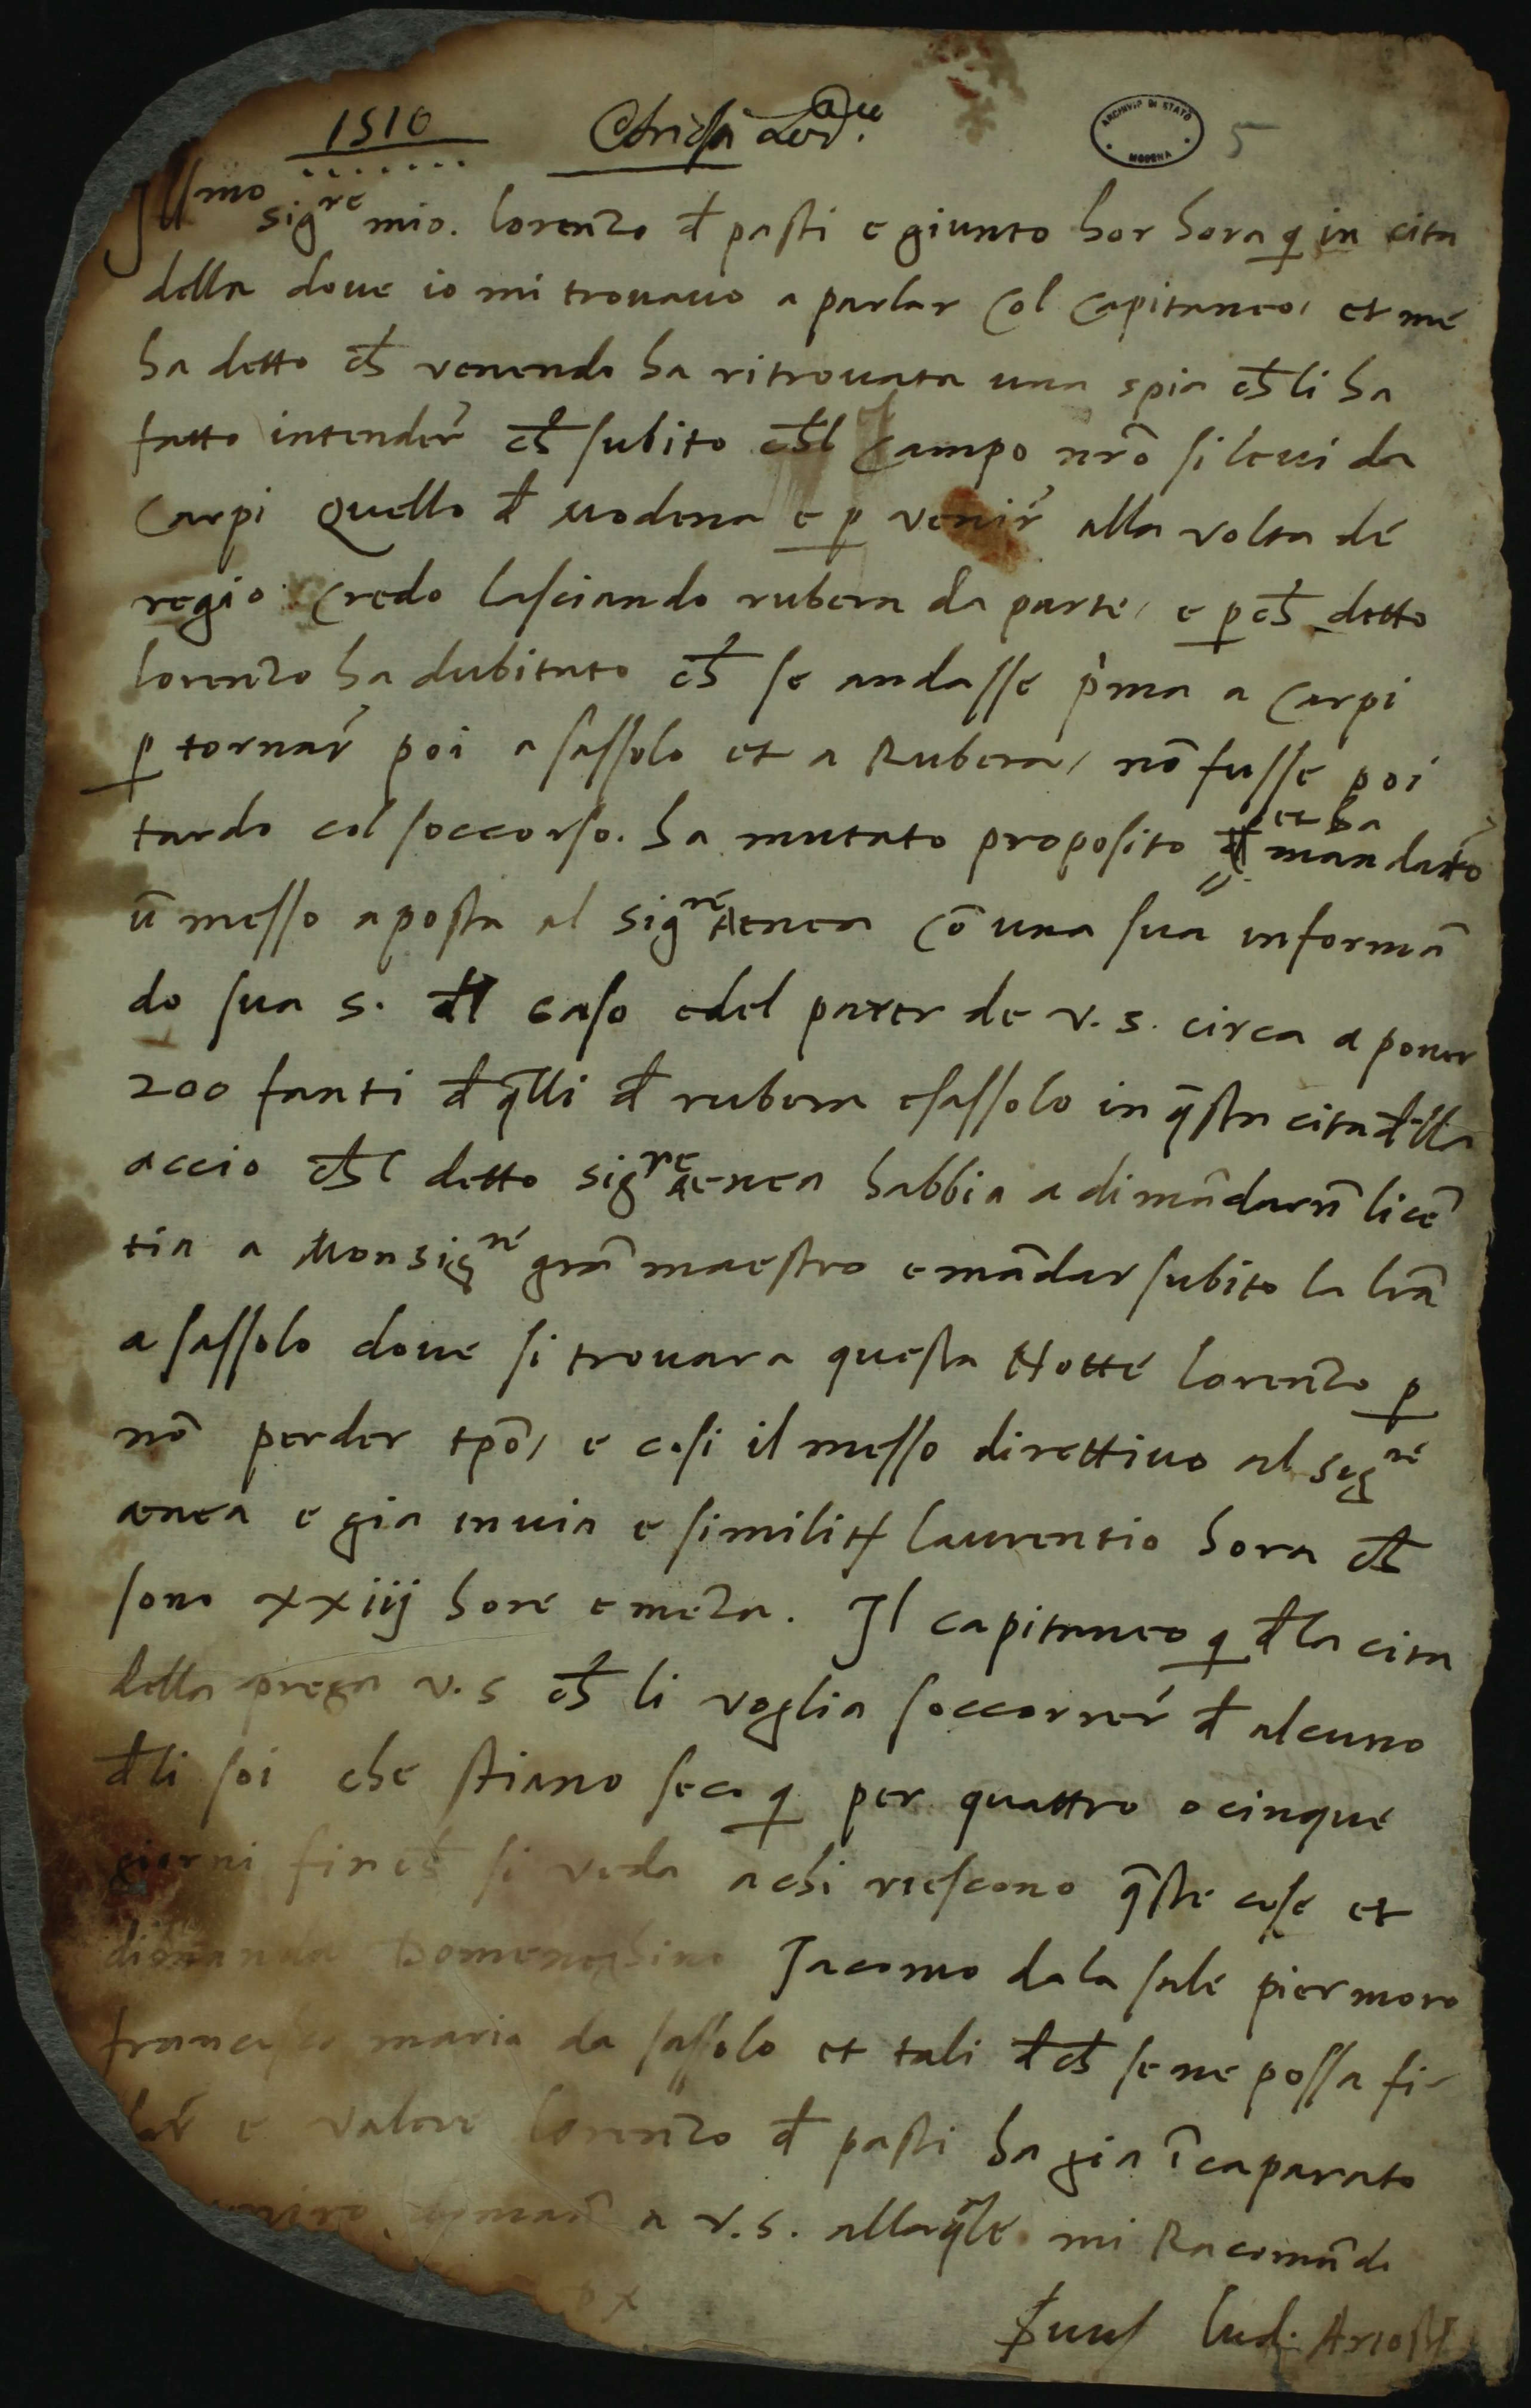 1510
ARCHIVIO DI STATO MODENA
5
Illmo sigre mio. lorenzo đ pasti e giunto hor hora q in cita
della doue io mi trouauo a parlar col capitaneo, et me
ha detto ch̄ venendo ha ritrouata una spia ch̄ li ha
fatto intender̄ ch̄ subito ch̄l campo nr̄o si leui da
carpi quello đ modena e ꝑ venir̄ alla volta de
regio credo lasciando rubera da parte, e ꝑch̄ detto
lorenzo ha dubitato ch̄ se andasse p'ma a carpi
ꝑ tornar̄ poi a sassolo et a Rubera, nō fusse poi
tardo col soccorso. ha mutato proposito et ha mandato
ū messo a posta al sigre Aenea cō una sua informā
do sua s. đl caso e del parer de v. s. circa a poner
200 fanti đ q̄lli đ rubera e sassolo in q̄sta citađlla
accio ch̄l detto sigre aenea habbia a dimādarn̄ licē
tia a Monsigre grā maestro e mādar subito la lrā
a sassolo doue si trouara questa Notte lorenzo ꝑ
nō perder tpō, e cosi il messo direttiuo al sigre
aenea e gia in uia e similit̄ laurentio hora ch̄
sono xxiij hore e meza. Il capitaneo q đla cita
della prega v. s ch̄ li voglia soccorrer̄ đ alcuno
đli soi che stiano seco q per quattro o cinque
giorni finch̄ si veda a chi riescono q̄ste cose et
dimanda Domeneghino Jacomo da la sale pier moro
francesco maria da sassolo et tali đ ch̄ se ne possa fi-
dar̄ e valere lorenzo đ pasti ha gia īcaparato
a v. s. alla q̄le mi Racomādo
Suus lud. Ariost